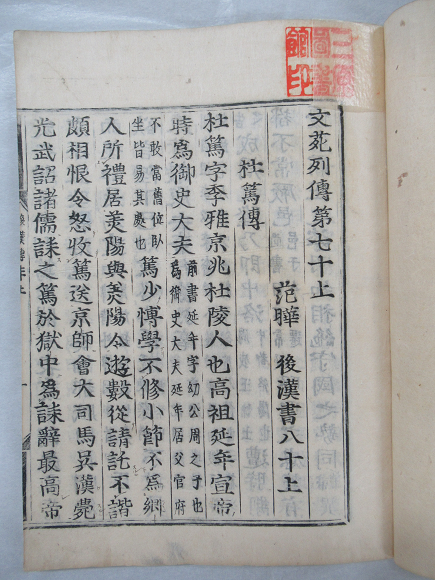 文苑列傳第七十上
范曄 後漢書八十上
杜篤傳
杜篤字季雅京兆杜陵人也高祖延年宣帝
時爲御史大夫前書延年字幼公周之子也爲御史大夫延年居父官府
不敢當舊位臥坐皆易其處也篤少博學不修小節不爲鄉
人所禮居美陽與美陽令遊數從請託不諧
頗相恨令怒收篤送京師會大司馬吳漢薨
光武詔諸儒誄之篤於獄中爲誄辭最高帝